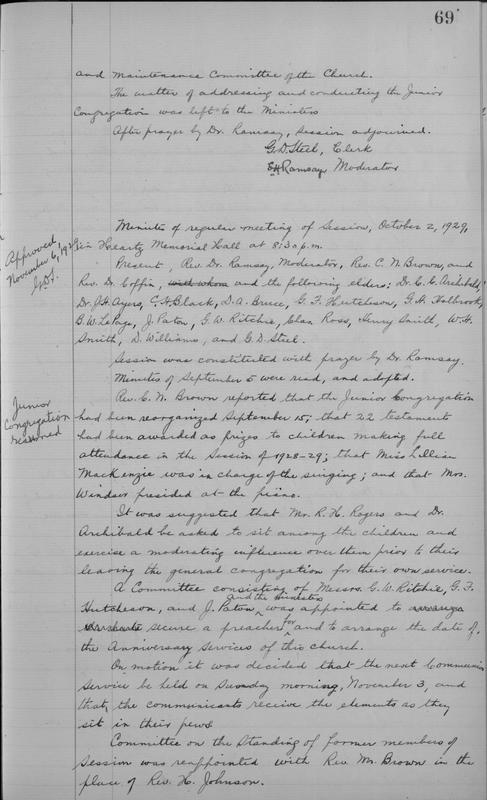 69
and Maintenance Committee of the Church.
The matter of addressing and conducting the Junior
Congregation was left to the Ministers
After prayer by Dr. Ramsay, session adjourned.
G.D. Steel, Clerk
Ramsay Moderator
Approved,
November 6, 1929
G.D.S.
Minutes of regular meeting of Session, October 2, 1929,
in Heartz Memorial Hall at 8:30 p.m.
Present, Rev. Dr. Ramsay, Moderator, Rev. C. N. Brown, and
Rev. Dr. Coffin, with whom and the following elders: Dr. C. E. Archibald,
Dr. J. H. Ayers, C. H. Black, D. A. Bruce, G. F. Hutcheson, G. H. Holbrook,
B. W. LePage, J. Paton, G. W. Ritchie, Clan Ross, Henry Smith, W. H.
Smith, D. Williams, and G. D. Steel.
Session was constituted with prayer by Dr. Ramsay.
Minutes of September 5 were read, and adopted.
Junior
Congregation
resumed
Rev. C. N. Brown reported that the Junior Congregation
had been reorganized September 15; that 22 testament
had been awarded as prizes to children making full
attendance in the Session of 1928-29; that Miss Lillian
MacKenzie was in charge of the singing; and that Mrs.
Windsor presided at the piano.
It was suggested that Mr. R. H. Rogers and Dr.
Archibald be asked to sit among the children and
exercise a moderating influence over them prior to their
leaving the general congregation for their own service.
A Committee consisting of Messrs. G. W. Ritchie, G. F.
and the Ministers
Hutcheson, and J. Paton, was appointed to arrange
secure a preacher for and to arrange the date of,
the Anniversary Services of this church.
On motion it was decided that the next Communion
Service be held on Sunday morning, November 3, and
that the communicants receive the elements as they
sit in their pews
Committee on the Standing of former members of
Session was reappointed with Rev. Mr. Brown in the
place of Rev. H. Johnson.